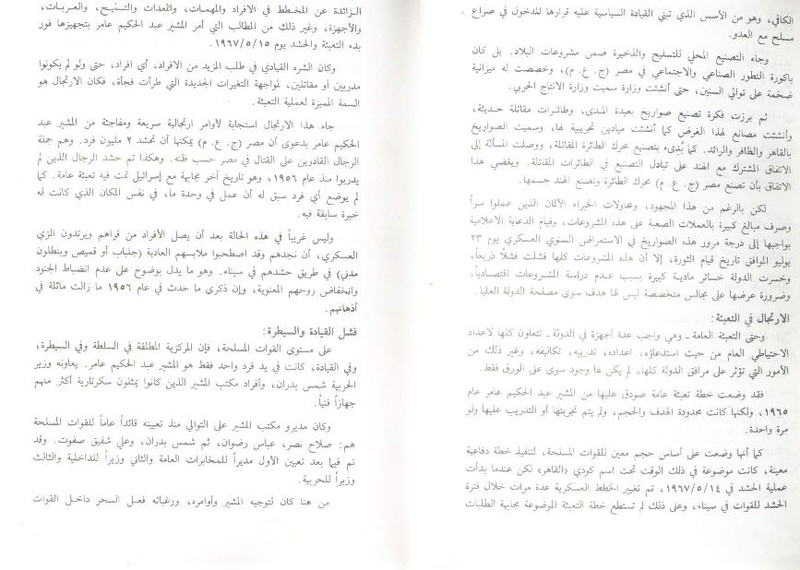 الكافي، وهو من الأسس الذي تبني القيادة السياسية عليه قرارها للدخول في صراع
مسلح مع العدو.
وجاء التصنيع المحلي للتسليح والذخيرة ضمن مشروعات البلاد. بل كان
باكورة التطور الصناعي والاجتماعي في مصر (ج. ع. م)، وخصصت له ميزانية
ضخمة على توالي السنين، حتى أنشئت وزارة سميت وزارة الانتاج الحربي.
ثم برزت فكرة تصنيع صواريخ بعيدة المدى، وطائرات مقاتلة حديثة،
وأنشئت مصانع لهذا الغرض كما أنشئت ميادين تجريبية لها، وسميت الصواريخ
بالقاهر والظافر والرائد. كما بُدىء بتصنيع محرك الطائرة المقاتلة، ووصلت المسألة إلى
الاتفاق المشترك مع الهند على تبادل التصنيع في الطائرات المقاتلة. ويقضي هذا
الاتفاق بأن تصنع مصر (ج. ع. م) محرك الطائرة وتصنع الهند جسمها.
لكن بالرغم من هذا المجهود، ومحاولات الخبراء الألمان الذين عملوا سراً
وصرف مبالغ كبيرة بالعملات الصعبة على هذه المشروعات، وقيام الدعاية الاعلامية
بواجبها إلى درجة مرور هذه الصواريخ في الاستعراض السنوي العسكري يوم ٢٣
يوليو الموافق تاريخ قيام الثورة، إلا أن هذه المشروعات كلها فشلت فشلاً ذريعاً،
وخسرت الدولة خسائر مادية كبيرة بسبب عدم دراسة المشروعات اقتصادياً،
وضرورة عرضها على مجالس متخصصة ليس لها هدف سوى مصلحة الدولة العليا.
الارتجال في التعبئة:
وحتى التعبئة العامة ـ وهي واجب عدة أجهزة في الدولة ـ تتعاون كلها لاعداد
الاحتياطي العام من حيث استدعاؤه، اعداده، تدريبه، تكاليفه، وغير ذلك من
الأمور التي تؤثر على مرافق الدولة كلها، لم يكن لها وجود سوى على الورق فقط.
فقد وضعت خطة تعبئة عامة صودق عليها من المشير عبد الحكيم عامر عام
١٩٦٥، ولكنها كانت محدودة الهدف والحجم، ولم يتم تجربتها أو التدريب عليها ولو
مرة واحدة.
كما أنها وضعت على أساس حجم معين للقوات المسلحة، لتنفيذ خطة دفاعية
معينة، كانت موضوعة في ذلك الوقت تحت اسم كودي «القاهر» لكن عندما بدأت
عملية الحشد في ١٩٦٧/٥/١٤، تم تغيير الخطط العسكرية عدة مرات خلال فترة
الحشد للقوات في سيناء، وعلى ذلك لم تستطع خطة التعبئة الموضوعة مجابهة الطلبات
الزائدة عن المخطط في الافراد والمهمات، والمعدات والتسليح، والعربات،
والأجهزة، وغير ذلك من المطالب التي أمر المشير عبد الحكيم عامر بتجهيزها فور
بدء التعبئة والحشد يوم ١٩٦٧/٥/١٥.
وكان الشره القيادي في طلب المزيد من الافراد، أي افراد، حتى ولو لم يكونوا
مدربين أو مقاتلين، لمواجهة التغيرات الجديدة التي طرأت فجأة، فكان الارتجال هو
السمة المميزة لعملية التعبئة.
جاء هذا الارتجال استجابة لأوامر ارتجالية سريعة ومفاجئة من المشير عبد
الحكيم عامر بدعوى أن مصر (ج. ع. م) يمكنها أن تحشد ٢ مليون فرد. وهم جملة
الرجال القادرين على القتال في مصر حسب ظنه. وهكذا تم حشد الرجال الذين لم
يتدربوا منذ عام ١٩٥٦، وهو تاريخ آخر مجابهة مع إسرائيل تمت فيه تعبئة عامة. كما
لم يوضع أي فرد سبق له أن عمل في وحدة ما، في نفس المكان الذي كانت له
خبرة سابقة فيه.
وليس غريباً في هذه الحالة بعد أن يصل الأفراد من قراهم ويرتدون الزي
العسكري، أن نجدهم وقد اصطحبوا ملابسهم العادية (جلباب أو قميص وبنطلون
مدني) في طريق حشدهم في سيناء. وهو ما يدل بوضوح على عدم انضباط الجنود
وانخفاض روحهم المعنوية، وإن ذكرى ما حدث في عام ١٩٥٦ ما زالت ماثلة في
أذهانهم.
فشل القيادة والسيطرة:
على مستوى القوات المسلحة، فإن المركزية المطلقة في السلطة وفي السيطرة،
وفي القيادة، كانت في يد فرد واحد فقط هو المشير عبد الحكيم عامر. يعاونه وزير
الحربية شمس بدران، وأفراد مكتب المشير الذين كانوا يمثلون سكرتارية أكثر منهم
جهازاً فنياً.
وكان مديرو مكتب المشير على التوالي منذ تعيينه قائداً عاماً للقوات المسلحة
هم: صلاح نصر، عباس رضوان، ثم شمس بدران، وعلي شفيق صفوت. وقد
تم فيما بعد تعيين الأول مديراً للمخابرات العامة والثاني وزيراً للداخلية والثالث
وزيراً للحربية.
من هنا كان لتوجيه المشير وأوامره، ورغباته فعل السحر داخل القوات